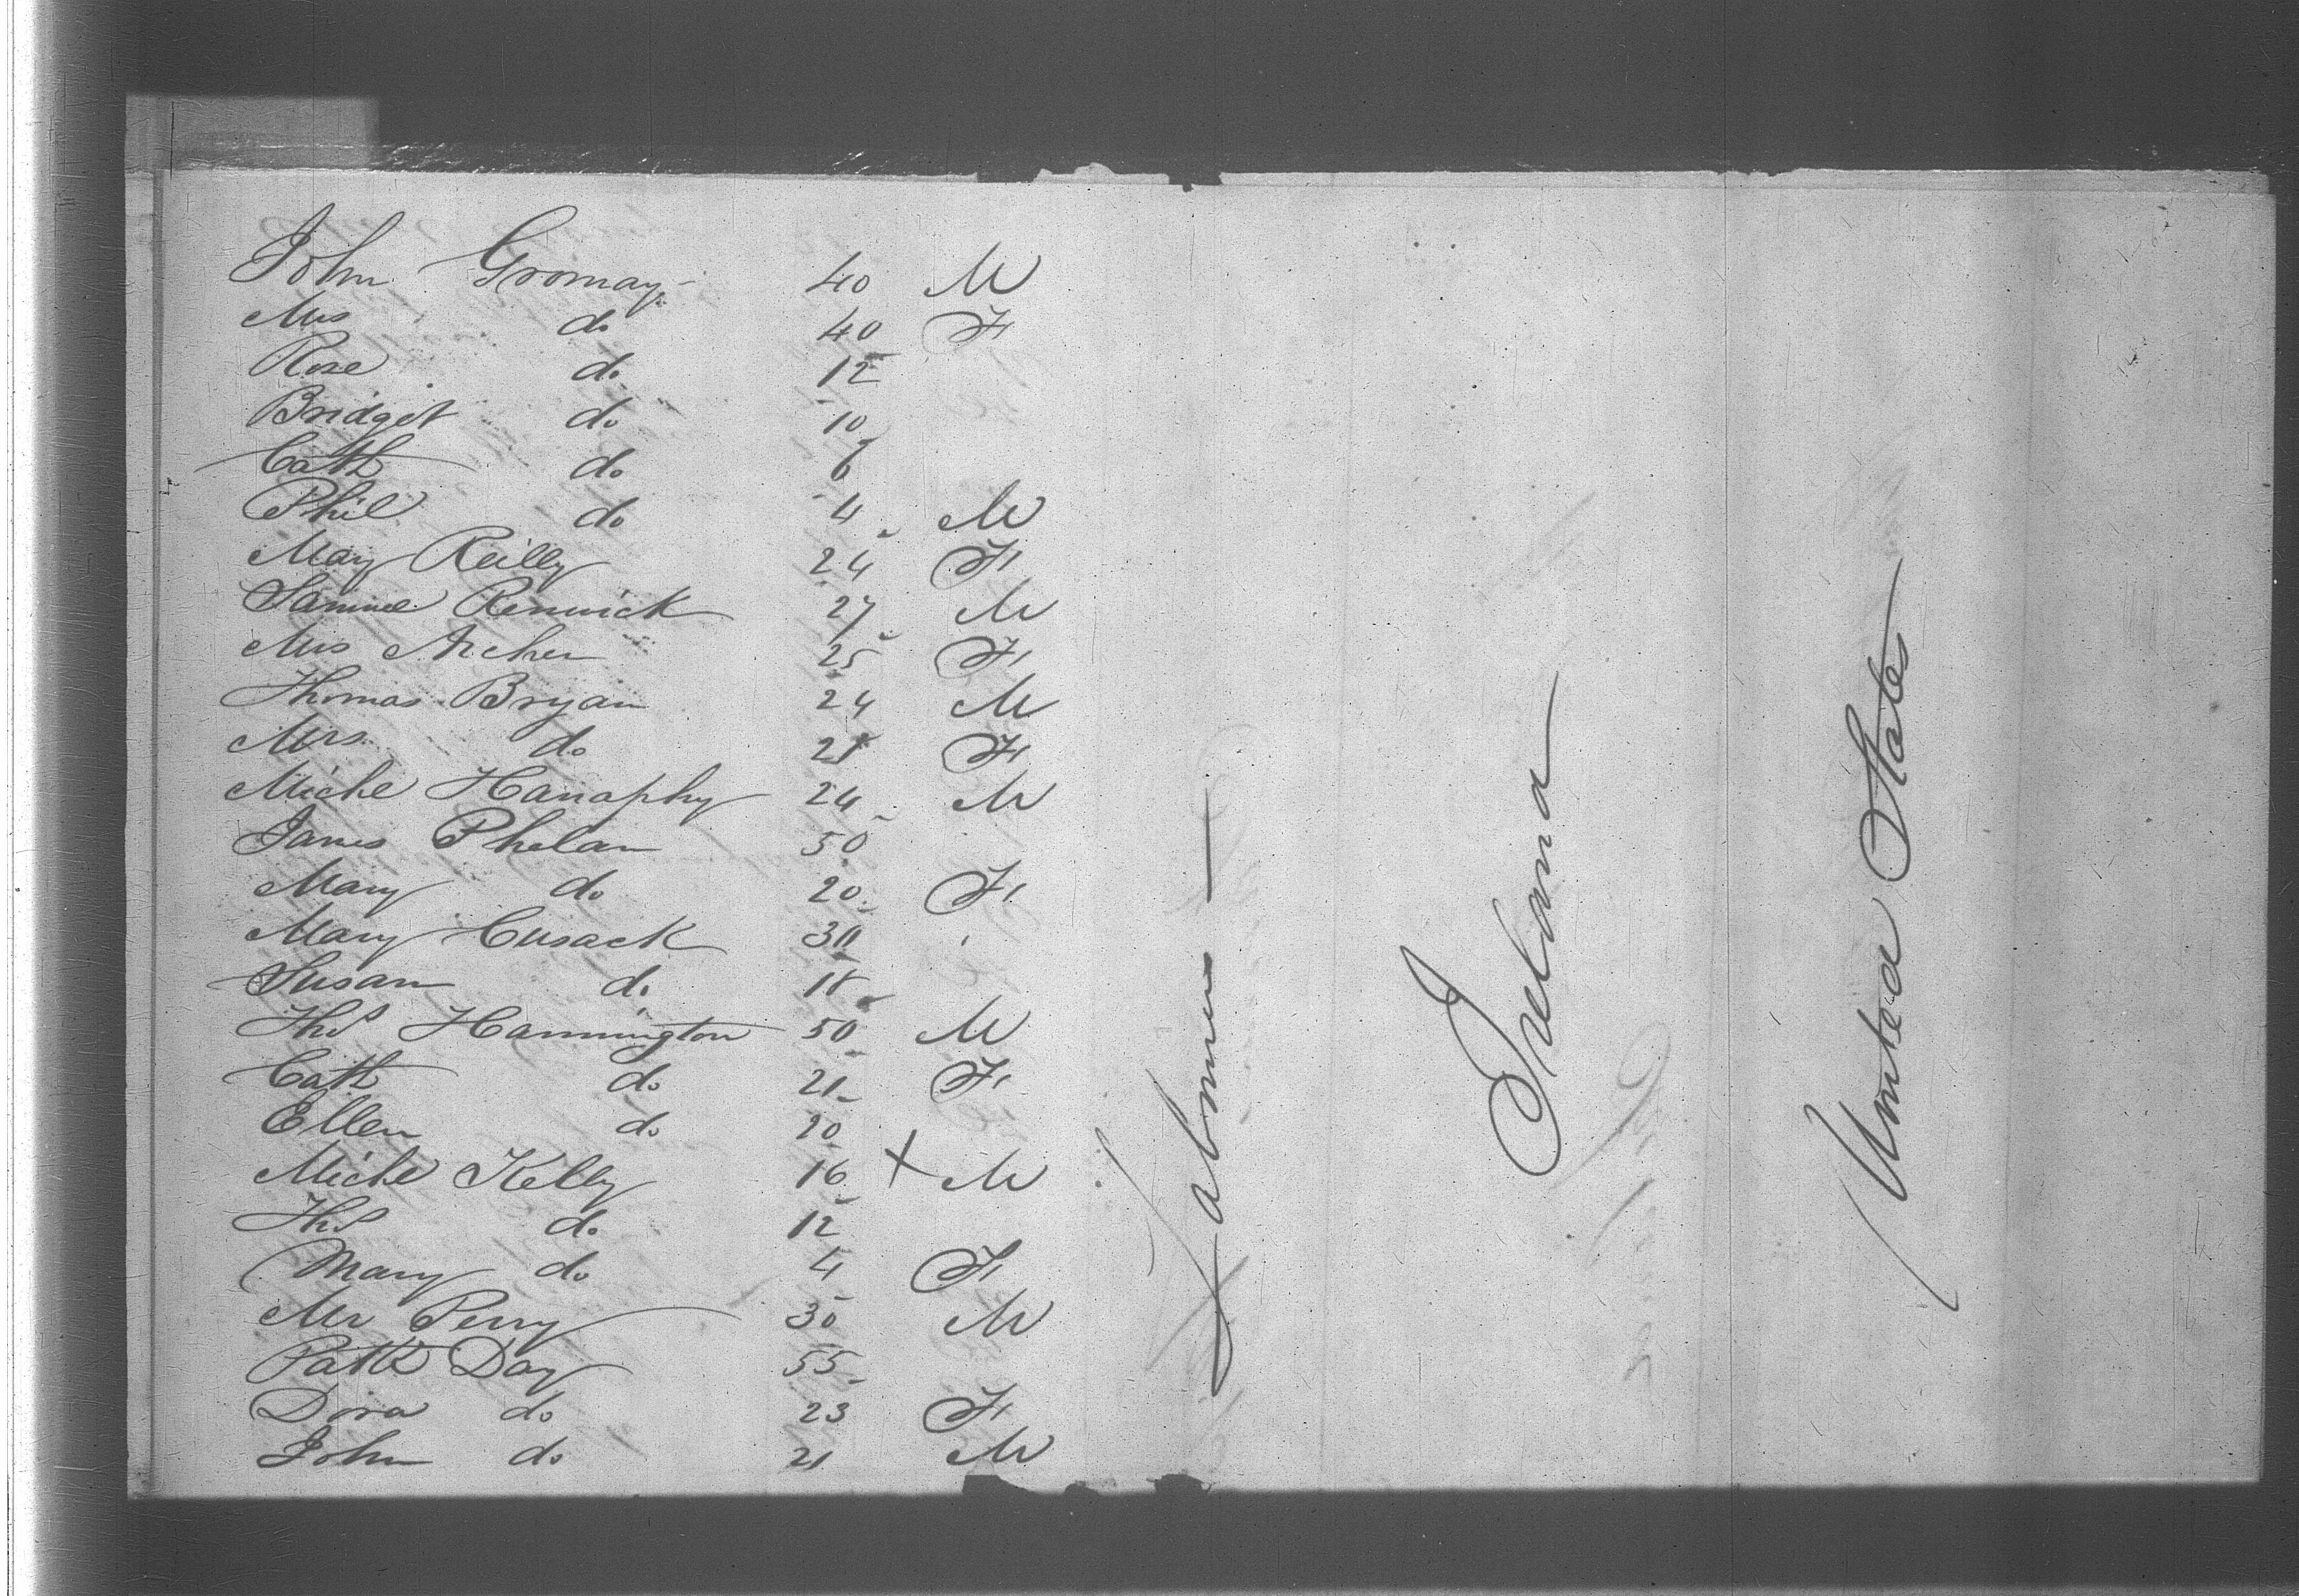 John Gromay 40 M
Mrs do 40 F
Rose do 12
Bridget do 10
Cath do 6
Phil do 4 M
May Reilly 24 F
Samuel Renwick 27 M
Mrs Archer 25 F
Thomas Bryan 24 M
Mrs do 21 F
Michl Hanaphy 24 M
James Phelan 50
Mary do 20 F
Mary Cusack 30
Susan do 18
Ths Hannington 50 M
Cath do 21 F
Ellen do 20
Michl Kelly 16 X M
Ths do 12
Mary do 4 F
Mr Perry 30 M
Patk Day 55
Dora do 23 F
John do 21 M
Labourers
Ireland
United States